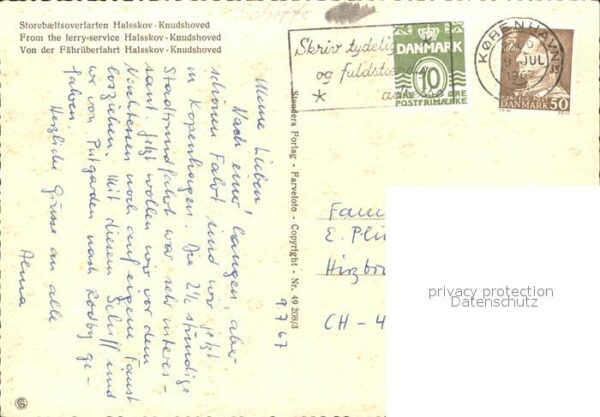 Storebæltsoverfarten Halsskov - Knudshoved
From the ferry-service Halsskov - Knudshoved
Von der Fährüberfahrt Halsskov - Knudshoved
Skriv tydelig
og fuldstændig
*
KØBENHAVN
JUL
DANMARK
10
ØRE
POSTFRIMÆRKE
DANMARK 50
9.7.67
Meine Lieben!
Nach einer langen, aber
schönen Fahrt sind wir jetzt
in Kopenhagen. Die 2½ stündige
Stadtrundfahrt war sehr interes-
sant. Jetzt wollen wir vor dem
Nachtessen noch auf eigene Faust
losziehen. Mit diesem Schiff sind
wir von Putgarden nach Rödby ge-
fahren
Herzliche Grüsse an alle
Slenders Forlag - Farvefoto - Copyright - Nr. 49 208/3
Fam
E. Plü
Hirzbr
CH - 4
privacy protection
Datenschutz